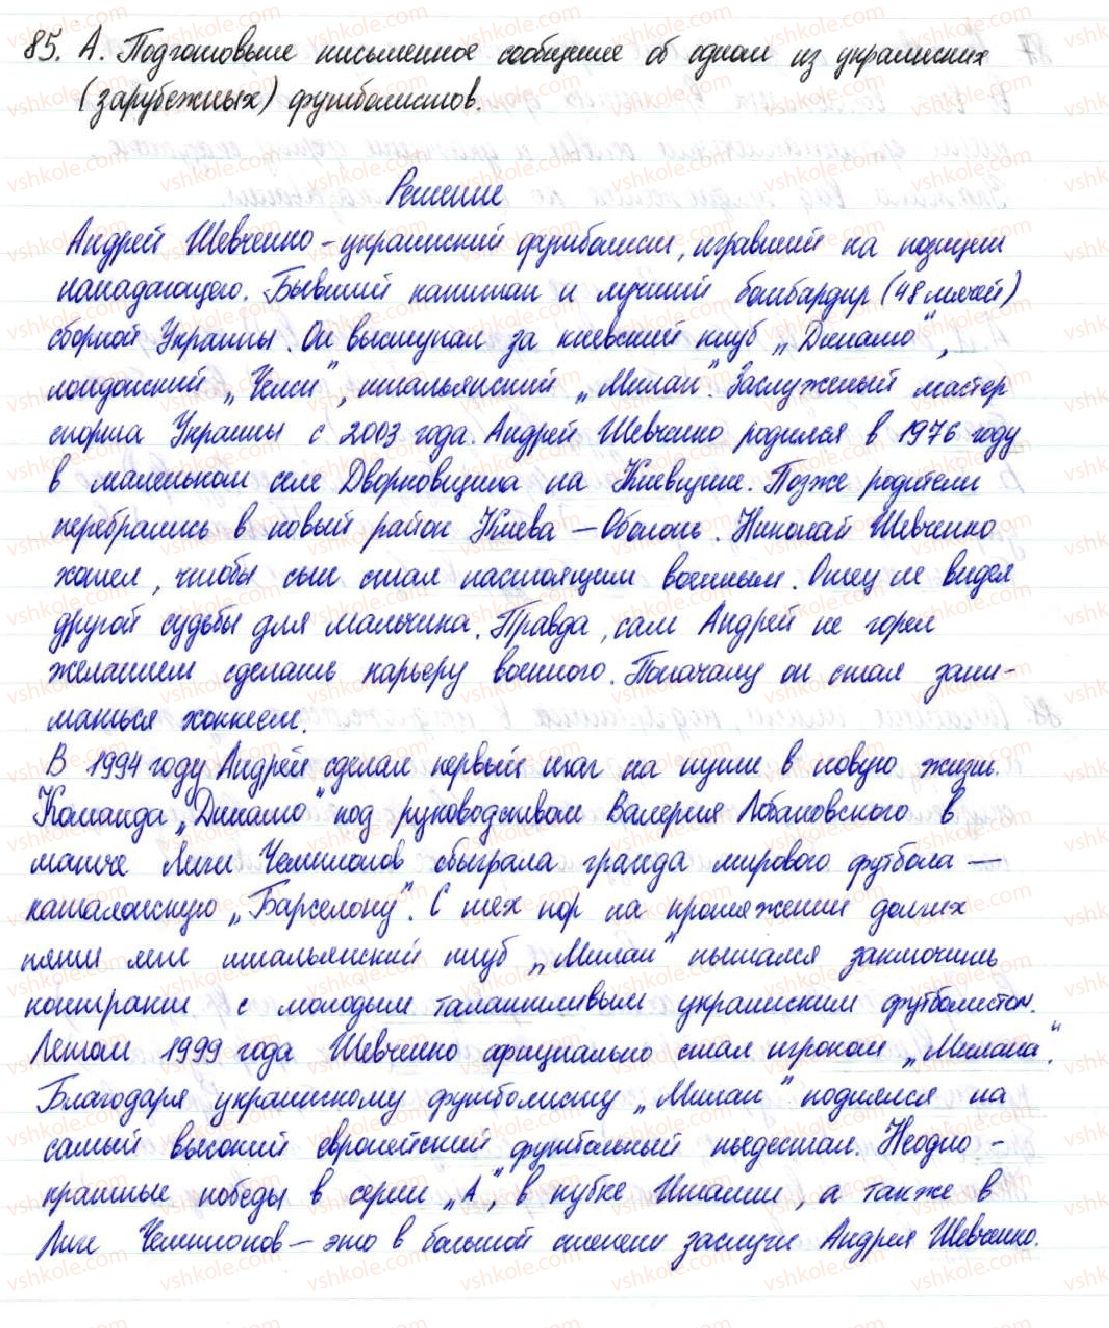 85. А. Подготовьте письменное сообщение об одном из украинских
(зарубежных) футболистов.
Решение
Андрей Шевченко – украинский футболист, игравший на позиции
нападающего. Бывший капитан и лучший бомбардир (48 мячей)
сборной Украины. Он выступал за киевский клуб „Динамо",
лондонский „Челси", итальянский „Милан". Заслуженый мастер
спорта Украины с 2003 года. Андрей Шевченко родился в 1976 году
в маленьком селе Дворковщина на Киевщине. Позже родители
перебрались в новый район Киева – Оболонь. Николай Шевченко
хотел, чтобы сын стал настоящим военным. Отец не видел
другой судьбы для мальчика. Правда, сам Андрей не горел
желанием сделать карьеру военного. Поначалу он стал зани-
маться хоккеем.
В 1994 году Андрей сделал первый шаг на пути в новую жизнь.
Команда „Динамо" под руководством Валерия Лобановского в
матче Лиги Чемпионов обыграла гранда мирового футбола —
каталонскую „Барселону". С тех пор на протяжении долгих
пяти лет итальянский клуб „Милан" пытался заключить
контракт с молодым талантливым украинским футболистом.
Летом 1999 года Шевченко официально стал игроком „Милана".
Благодаря украинскому футболисту „Милан" поднялся на
самый высокий европейский футбольный пьедестал. Неодно-
кратные победы в серии „А", в кубке Италии, а также в
Лиге Чемпионов – это в большой степени заслуги Андрея Шевченко.